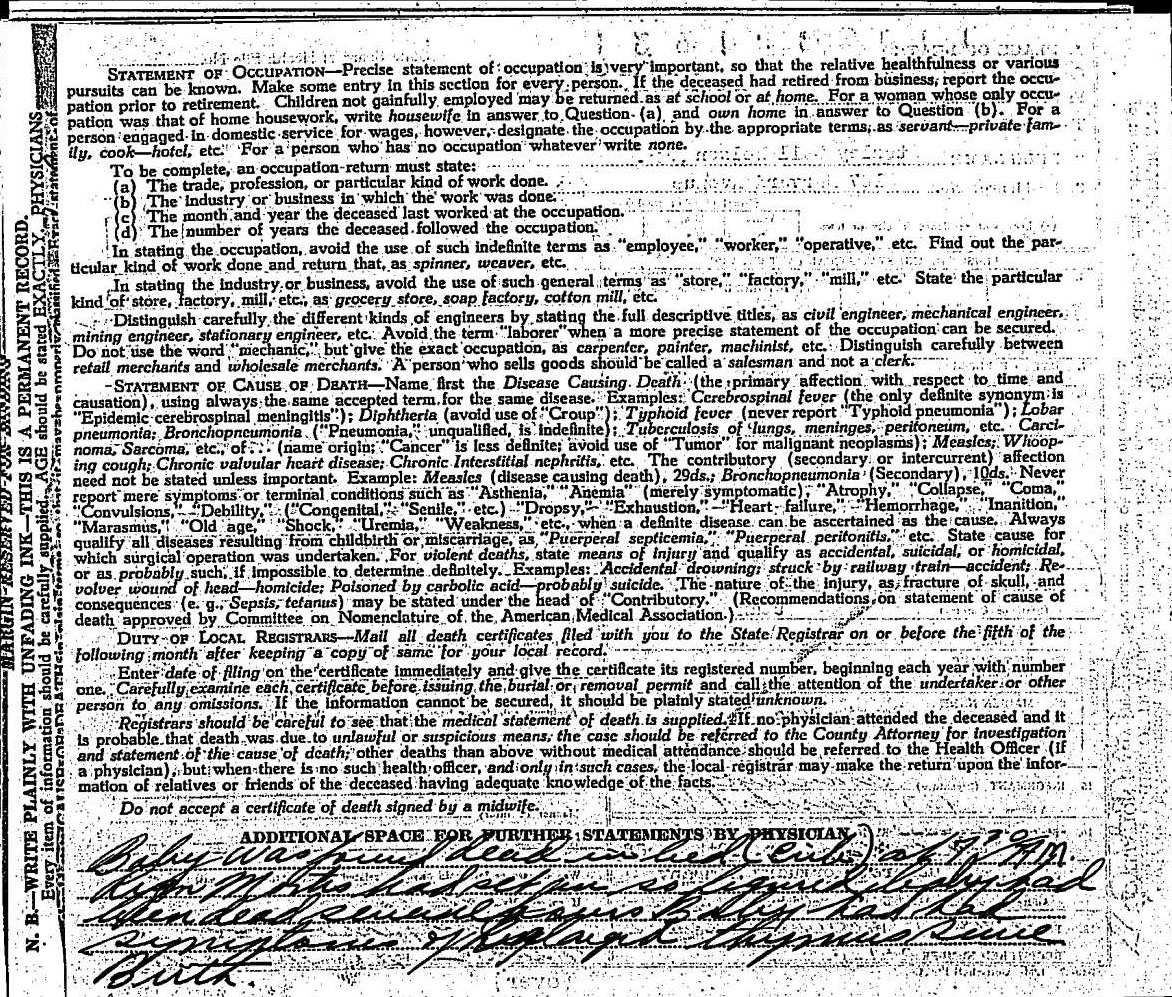 STATEMENT OF OCCUPATION—Precise statement of occupation is very important, so that the relative healthfulness or various
pursuits can be known. Make some entry in this section for every person. If the deceased had retired from business, report the occu-
pation prior to retirement. Children not gainfully employed may be returned as at school or at home. For a woman whose only occu-
pation was that of home housework, write housewife in answer to Question (a) and own home in answer to Question (b). For a
person engaged in domestic service for wages, however, designate the occupation by the appropriate terms, as servant—private fam-
ily, cook—hotel, etc. For a person who has no occupation whatever write none.
To be complete, an occupation return must state:
(a) The trade, profession, or particular kind of work done.
(b) The industry or business in which the work was done.
(c) The month and year the deceased last worked at the occupation.
(d) The number of years the deceased followed the occupation.
In stating the occupation, avoid the use of such indefinite terms as "employee," "worker," "operative," etc. Find out the par-
ticular kind of work done and return that, as spinner, weaver, etc.
In stating the industry or business, avoid the use of such general terms as "store," "factory," "mill," etc. State the particular
kind of store, factory, mill, etc., as grocery store, soap factory, cotton mill, etc.
Distinguish carefully the different kinds of engineers by stating the full descriptive titles, as civil engineer, mechanical engineer,
mining engineer, stationary engineer, etc. Avoid the term "laborer" when a more precise statement of the occupation can be secured.
Do not use the word "mechanic," but give the exact occupation, as carpenter, painter, machinist, etc. Distinguish carefully between
retail merchants and wholesale merchants. A person who sells goods should be called a salesman and not a clerk.
STATEMENT OF CAUSE OF DEATH—Name first the Disease Causing Death (the primary affection with respect to time and
causation), using always the same accepted term for the same disease. Examples: Cerebrospinal fever (the only definite synonym is
"Epidemic cerebrospinal meningitis"); Diphtheria (avoid use of "Croup"); Typhoid fever (never report "Typhoid pneumonia"); Lobar
pneumonia; Bronchopneumonia ("Pneumonia," unqualified, is indefinite); Tuberculosis of lungs, meninges, peritoneum, etc. Carci-
noma, Sarcoma, etc., of... (name origin; "Cancer" is less definite; avoid use of "Tumor" for malignant neoplasms); Measles; Whoop-
ing cough; Chronic valvular heart disease; Chronic Interstitial nephritis, etc. The contributory (secondary or intercurrent) affection
need not be stated unless important. Example: Measles (disease causing death), 29ds.; Bronchopneumonia (Secondary), 10ds. Never
report mere symptoms or terminal conditions such as "Asthenia," "Anemia" (merely symptomatic), "Atrophy," "Collapse," "Coma,"
"Convulsions," "Debility," ("Congenital," "Senile," etc.) "Dropsy," "Exhaustion," "Heart failure," "Hemorrhage," "Inanition,"
"Marasmus," "Old age," "Shock," "Uremia," "Weakness," etc., when a definite disease can be ascertained as the cause. Always
qualify all diseases resulting from childbirth or miscarriage, as "Puerperal septicemia," "Puerperal peritonitis," etc. State cause for
which surgical operation was undertaken. For violent deaths, state means of injury and qualify as accidental, suicidal, or homicidal,
or as probably such, if impossible to determine definitely. Examples: Accidental drowning; struck by railway train—accident; Re-
volver wound of head—homicide; Poisoned by carbolic acid—probably suicide. The nature of the injury, as fracture of skull, and
consequences (e. g., Sepsis, tetanus) may be stated under the head of "Contributory." (Recommendations on statement of cause of
death approved by Committee on Nomenclature of the American Medical Association.)
DUTY OF LOCAL REGISTRARS—Mail all death certificates filed with you to the State Registrar on or before the fifth of the
following month after keeping a copy of same for your local record.
Enter date of filing on the certificate immediately and give the certificate its registered number, beginning each year with number
one. Carefully examine each certificate before issuing the burial or removal permit and call the attention of the undertaker or other
person to any omissions. If the information cannot be secured, it should be plainly stated unknown.
Registrars should be careful to see that the medical statement of death is supplied. If no physician attended the deceased and it
is probable that death was due to unlawful or suspicious means, the case should be referred to the County Attorney for investigation
and statement of the cause of death; other deaths than above without medical attendance should be referred to the Health Officer (if
a physician), but when there is no such health officer, and only in such cases, the local registrar may make the return upon the infor-
mation of relatives or friends of the deceased having adequate knowledge of the facts.
Do not accept a certificate of death signed by a midwife.
ADDITIONAL SPACE FOR FURTHER STATEMENTS BY PHYSICIAN
Baby was found dead in bed (Crib) at A.M.
had set in so figured baby had
been dead several hours Baby had had
symptoms of Enlarged thymus since
Birth.
MARGIN RESERVED FOR BINDING
N. B.—WRITE PLAINLY WITH UNFADING INK—THIS IS A PERMANENT RECORD.
Every item of information should be carefully supplied. AGE should be stated EXACTLY. PHYSICIANS